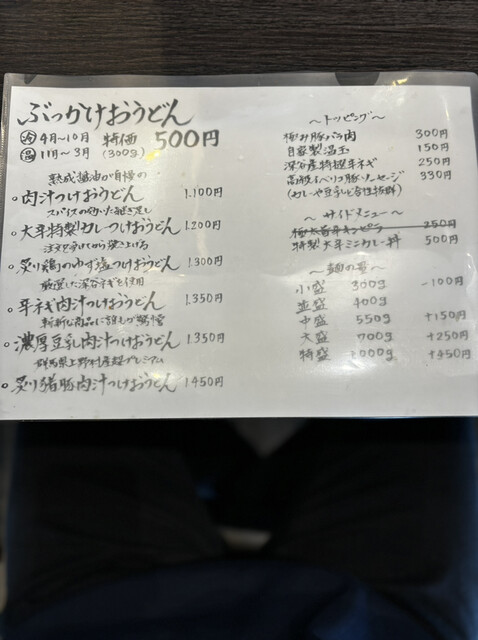 ぶっかけおうどん
冷 4月～10月 特価 500円
温 11月～3月 (300g)
熟成醤油が自慢の
。肉汁つけおうどん 1.100円
スパイスの効いた継ぎ足し
。大年特製!カレーつけおうどん 1.200円
注文を受けてから焼き上げる
。炙り鶏のゆず塩つけおうどん 1.300円
厳選した深谷ネギを使用
。辛ネギ肉汁つけおうどん 1.350円
斬新な商品に誰しも驚愕
。濃厚豆乳肉汁つけおうどん 1.350円
群馬県上野村産超プレミアム
。炙り猪豚肉汁つけおうどん 1450円
～トッピング～
極み豚バラ肉 300円
自家製温玉 150円
深谷産特選辛ネギ 250円
高級イベリコ豚ソーセージ 330円
(カレーや豆乳と相性抜群)
～サイドメニュー～
250円
特製!大年ミニカレー丼 500円
～麺の量～
小盛 300g -100円
並盛 400g
中盛 550g +150円
大盛 700g +250円
特盛 1000g +450円